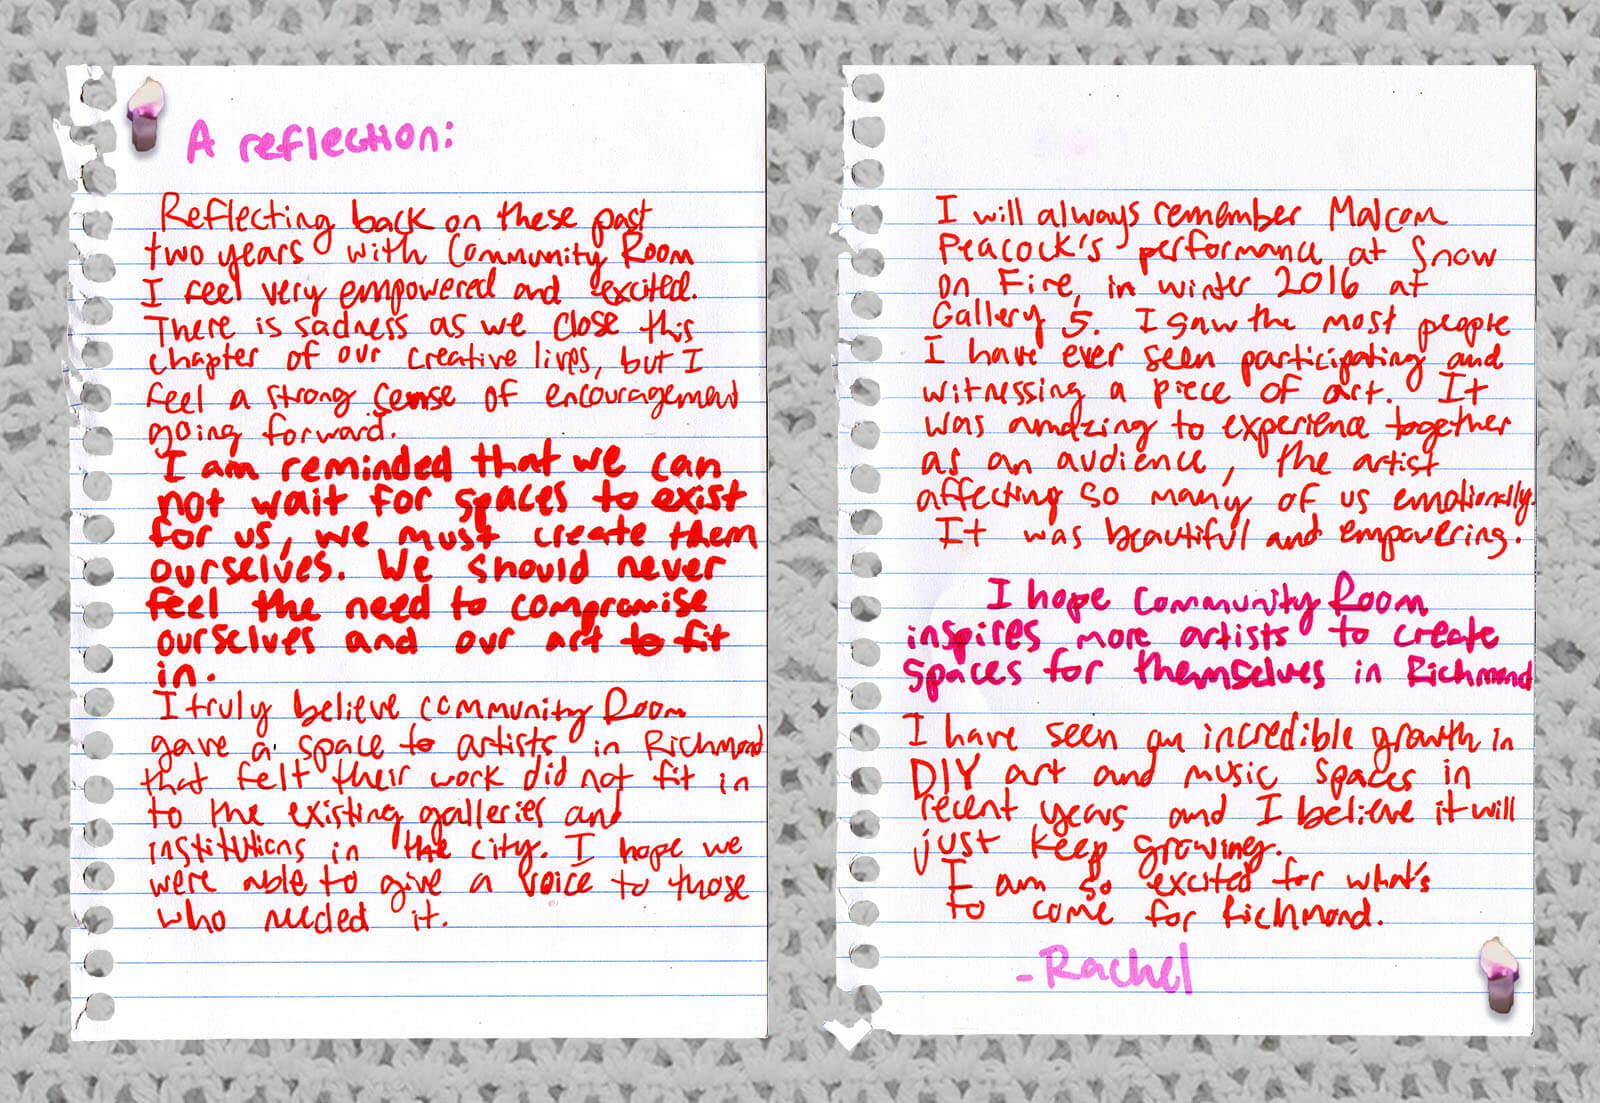 A reflection:
Reflecting back on these past
two years with Community Room
I feel very empowered and excited.
There is sadness as we close this
chapter of our creative lives, but I
feel a strong sense of encouragement
going forward.
I am reminded that we can
not wait for spaces to exist
for us, we must create them
ourselves. We should never
feel the need to compromise
ourselves and our art to fit
in.
I truly believe community Room
gave a space to artists in Richmond
that felt their work did not fit in
to the existing galleries and
institutions in the city. I hope we
were able to give a voice to those
who needed it.
I will always remember Malcom
Peacock's performance at Snow
on Fire, in winter 2016 at
Gallery 5. I saw the most people
I have ever seen participating and
witnessing a piece of art. It
was amazing to experience together
as an audience, the artist
affecting so many of us emotionally.
It was beautiful and empowering.
I hope Community Room
inspires more artists to create
spaces for themselves in Richmond
I have seen an incredible growth in
DIY art and music spaces in
recent years and I believe it will
just keep growing.
I am so excited for what's
to come for Richmond.
-Rachel